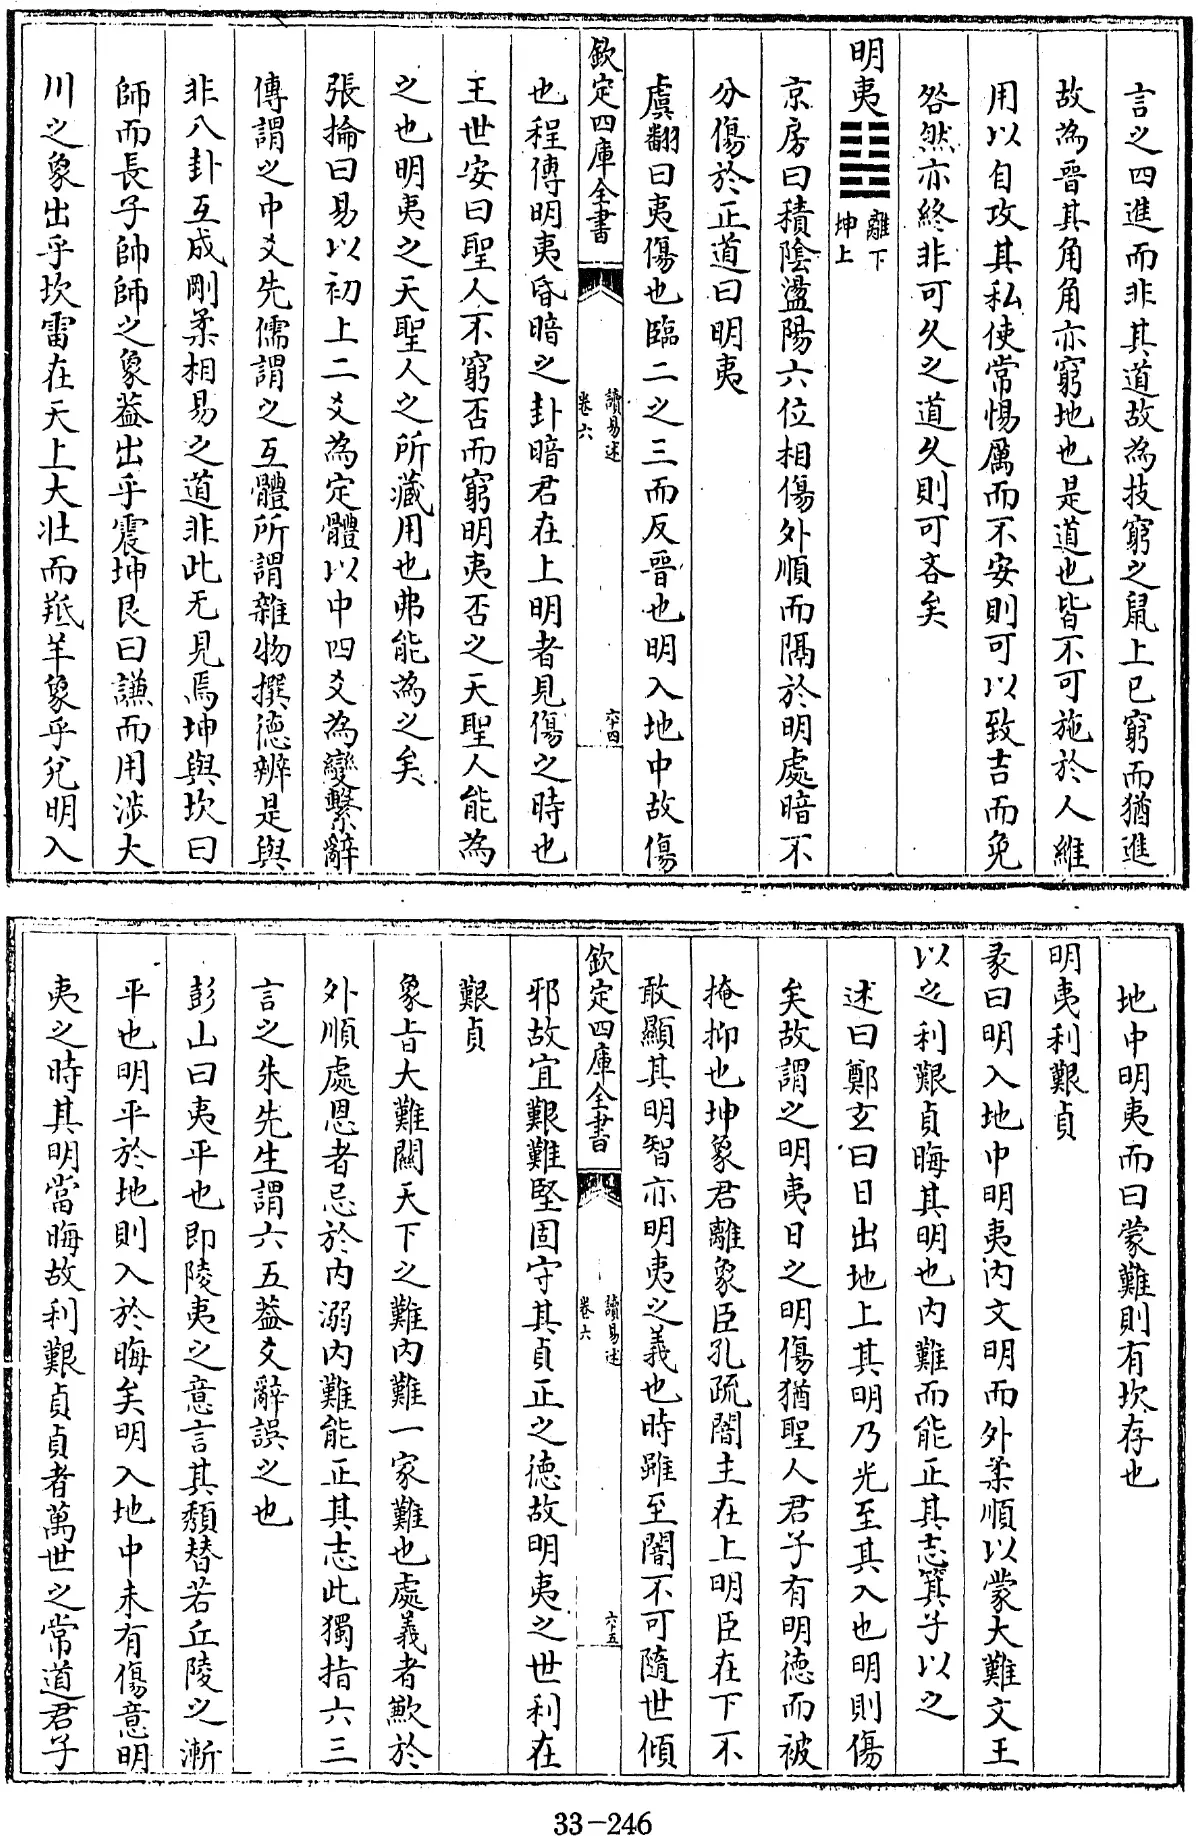 言之四進而非其道故為技窮之鼠上已窮而猶進
故為晉其角角亦窮地也是道也皆不可施於人維
用以自攻其私使常惕厲而不安則可以致吉而免
咎然亦終非可久之道久則可吝矣
明夷䷣離下坤上
京房曰積陰盪陽六位相傷外順而隔於明處暗不
分傷於正道曰明夷
虞翻曰夷傷也臨二之三而反晉也明入地中故傷
欽定四庫全書
讀易述
卷六
六十四
也程傳明夷昏暗之卦暗君在上明者見傷之時也
王世安曰聖人不窮否而窮明夷否之天聖人能為
之也明夷之天聖人之所藏用也弗能為之矣
張掄曰易以初上二爻為定體以中四爻為變繫辭
傳謂之中爻先儒謂之互體所謂雜物撰德辨是與
非八卦互成剛柔相易之道非此无見焉坤與坎曰
師而長子帥師之象葢出乎震坤艮曰謙而用涉大
川之象出乎坎雷在天上大壯而羝羊象乎兌明入
地中明夷而曰蒙難則有坎存也
明夷利艱貞
彖曰明入地中明夷内文明而外柔順以蒙大難文王
以之利艱貞晦其明也内難而能正其志箕子以之
述曰鄭玄曰日出地上其明乃光至其入也明則傷
矣故謂之明夷日之明傷猶聖人君子有明德而被
掩抑也坤象君離象臣孔疏闇主在上明臣在下不
敢顯其明智亦明夷之義也時雖至闇不可隨世傾
欽定四庫全書
讀易述
卷六
六十五
邪故宜艱難堅固守其貞正之德故明夷之世利在
艱貞
象旨大難關天下之難内難一家難也處義者歉於
外順處恩者忌於内溺内難能正其志此獨指六三
言之朱先生謂六五葢爻辭誤之也
彭山曰夷平也即陵夷之意言其頹替若丘陵之漸
平也明平於地則入於晦矣明入地中未有傷意明
夷之時其明當晦故利艱貞貞者萬世之常道君子
33-246